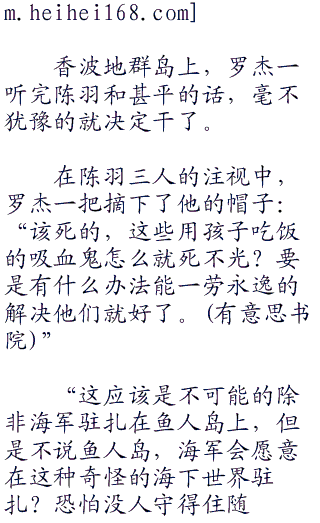 m.heihei168.com]
香波地群岛上，罗杰一
听完陈羽和甚平的话，毫不
犹豫的就决定干了。
在陈羽三人的注视中，
罗杰一把摘下了他的帽子：
“该死的，这些用孩子吃饭
的吸血鬼怎么就死不光？要
是有什么办法能一劳永逸的
解决他们就好了。(有意思书
院)”
“这应该是不可能的除
非海军驻扎在鱼人岛上，但
是不说鱼人岛，海军会愿意
在这种奇怪的海下世界驻
扎？恐怕没人守得住随